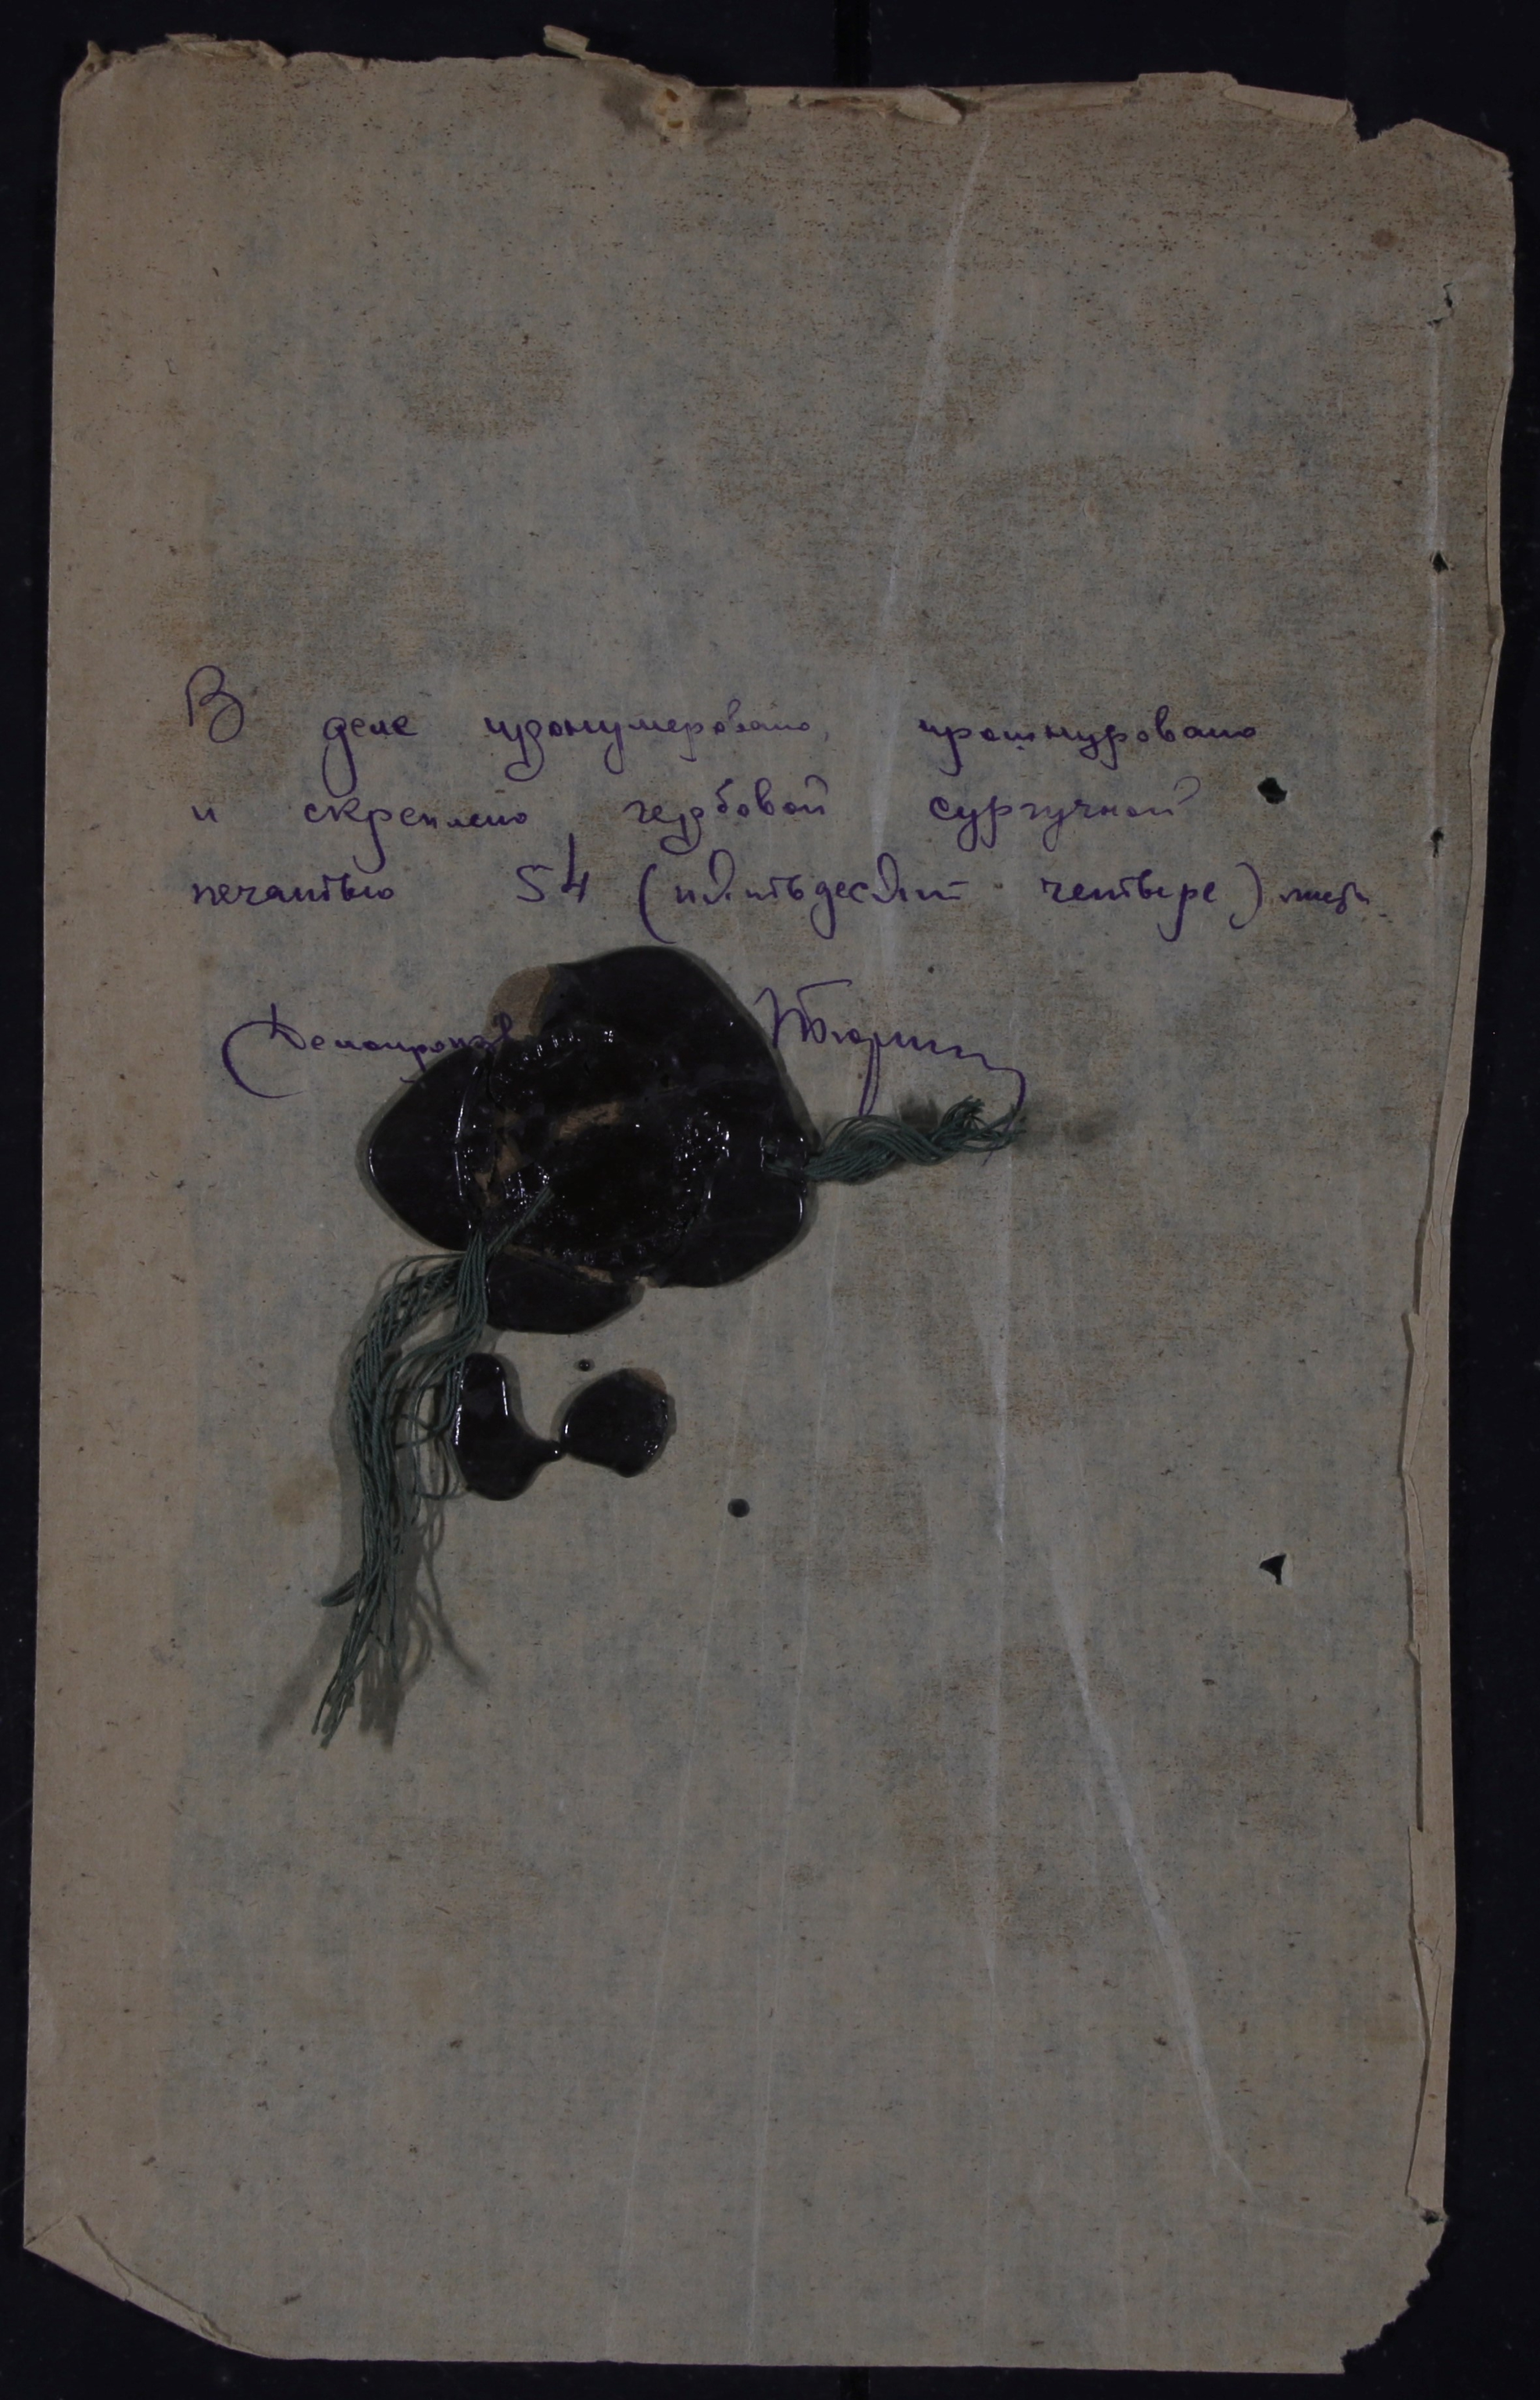 В деле пронумеровано, прошнуровано
и скреплено гербовой сургучной
печатью 54 (пятьдесят четыре) листа.
Делопроизв